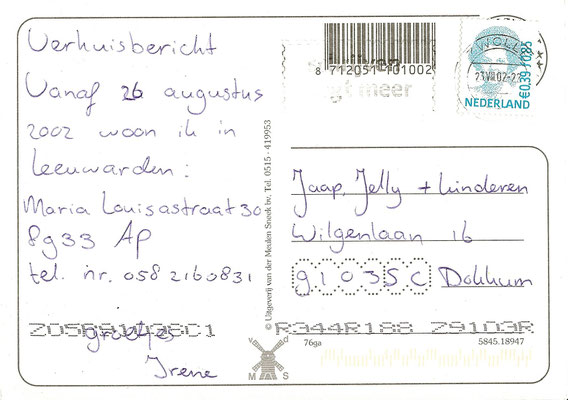 Verhuisbericht
Vanaf 26 augustus
2002 woon ik in
Leeuwarden:
Maria Louisastraat 30
8933 AP
tel. nr. 058 2160831
groetjes
Irene
8 712051 101002
ZWOLLE
€0,39/0,85
NEDERLAND
© Uitgeverij van der Meulen Sneek bv. Tel. 0515 - 419953
Jaap, Jelly + kinderen
Wilgenlaan 16
9103SC Dokkum
R344R188 Z9103R
v d
M S
76ga
5845.18947